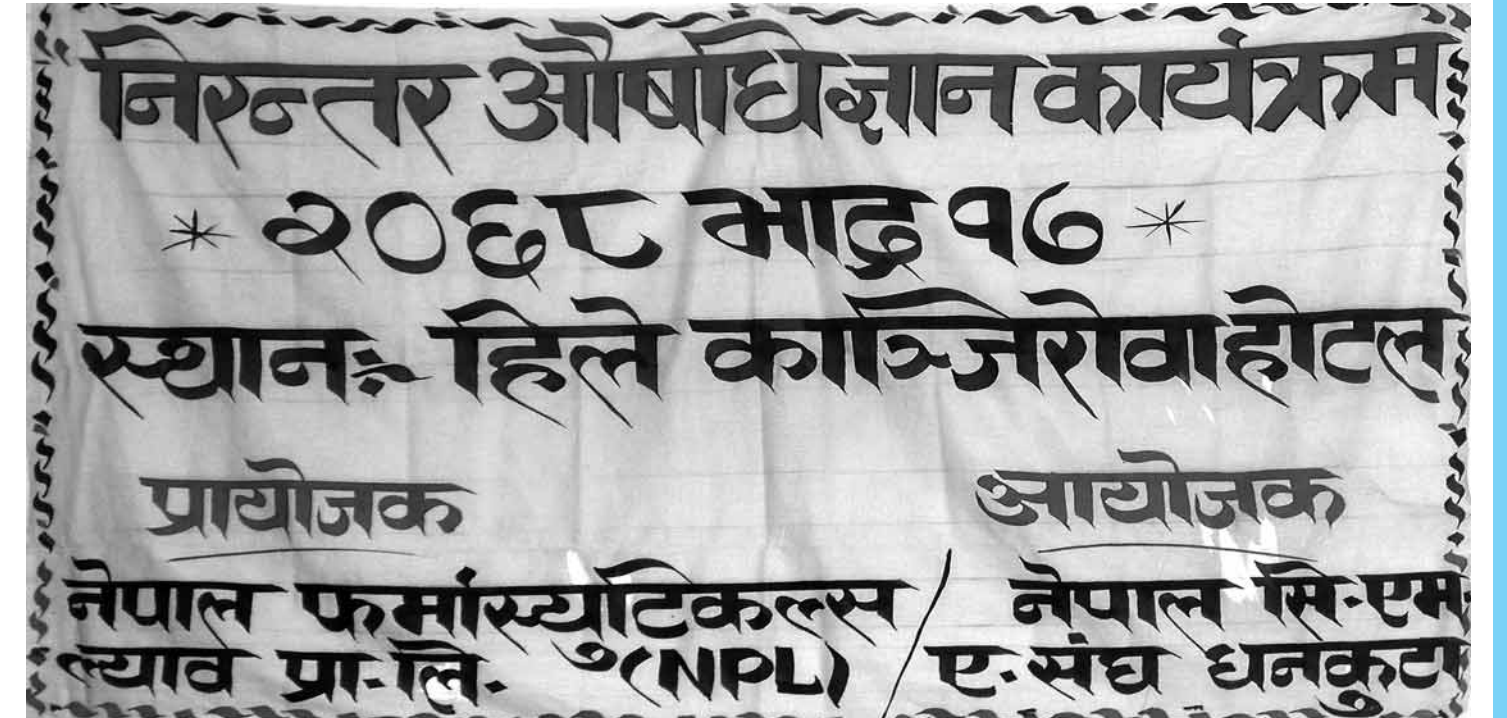 निरन्तर औषधिज्ञान कार्यक्रम
* २०६८ भाद्र १७ *
स्थानः- हिले काञ्जिरोवा होटल
प्रायोजक
नेपाल फर्मास्युटिकल्स
ल्याव प्रा.लि. (NPL)
आयोजक
नेपाल सि.एम.
ए.संघ धनकुटा